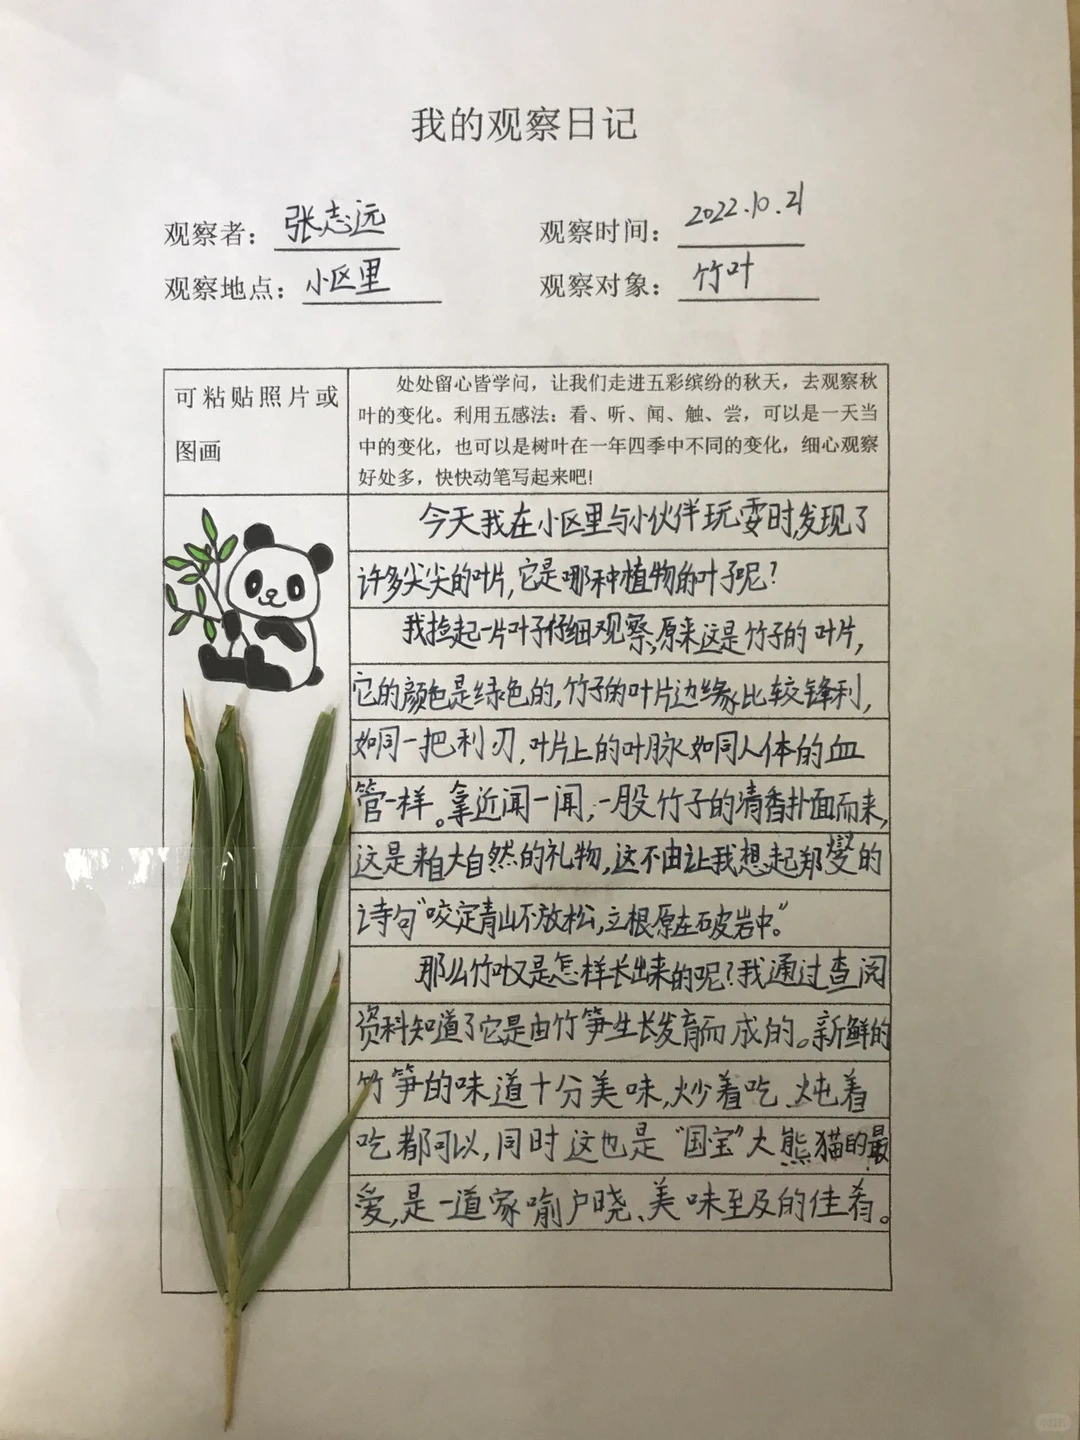 我的观察日记
观察者：张志远
观察时间：2022.10.21
观察地点：小区里
观察对象：竹叶
可粘贴照片或
图画
处处留心皆学问，让我们走进五彩缤纷的秋天，去观察秋
叶的变化。利用五感法：看、听、闻、触、尝，可以是一天当
中的变化，也可以是树叶在一年四季中不同的变化，细心观察
好处多，快快动笔写起来吧!
今天我在小区里与小伙伴玩耍时,发现了
许多尖尖的叶片,它是哪种植物的叶子呢?
我捡起一片叶子仔细观察,原来这是竹子的叶片,
它的颜色是绿色的,竹子的叶片边缘比较锋利,
如同一把利刃,叶片上的叶脉如同人体的血
管一样。拿近闻一闻,一股竹子的清香扑面而来,
这是来自大自然的礼物,这不由让我想起郑燮的
诗句“咬定青山不放松,立根原在破岩中。”
那么竹叶又是怎样长出来的呢?我通过查阅
资料知道了它是由竹笋生长发育而成的。新鲜的
竹笋的味道十分美味,炒着吃、炖着
吃都可以,同时这也是“国宝”大熊猫的最
爱,是一道家喻户晓、美味至及的佳肴。